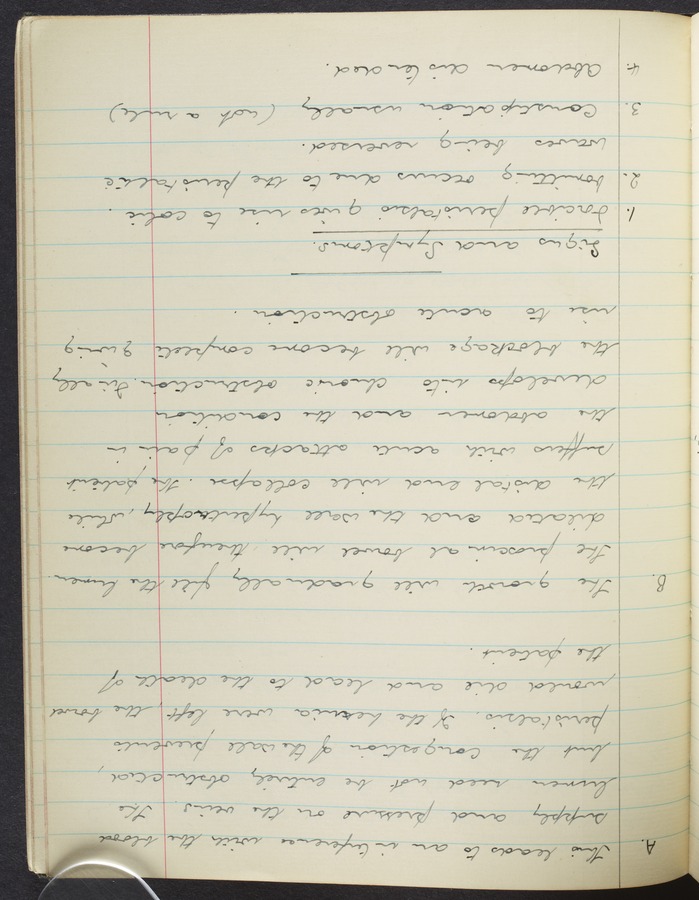 A. This leads to an inteference with the blood
supply and pressure on the veins. The
lumen need not be entirely obstructed,
but the congestion of the wall prevents
peristalsis. If the hernia were left, the bowel
would die and lead to the death of
the patient.
B. The growth will gradually fill the lumen
the proximal bowel will, therefore, become
dilated and the wall hypertrophy, while
the distal end will collapse. The patient
suffers with acute attacks of pain in
the abdomen and the condition
develops into chronic obstruction. Finally
the blockage will become complete giving
rise to acute obstruction.
Signs and Symptoms.
1. Forcible peristalsis gives rise to colic.
2. Vomiting occurs due to the peristaltic
waves being reversed.
3. Constipation usually (not a rule)
4. Abdomen distended.